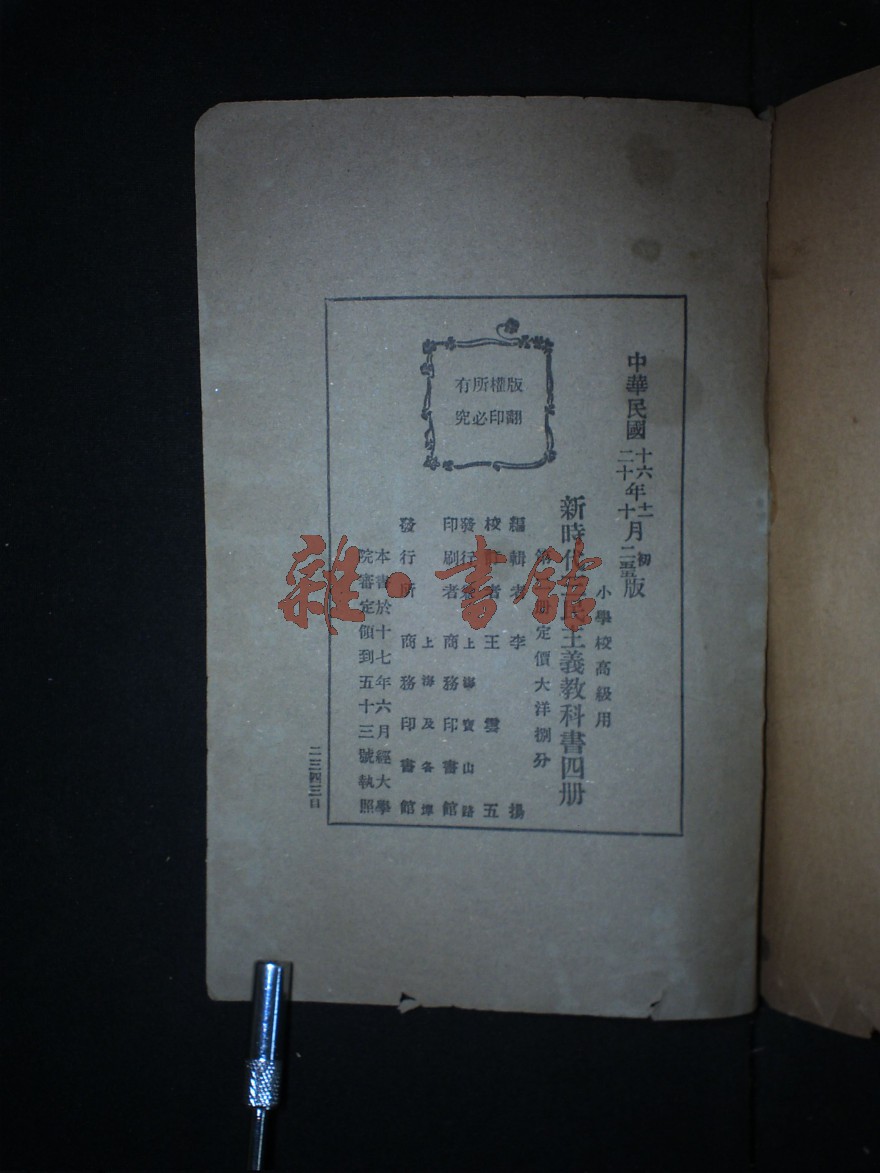 中華民國
十六年十二月初版
二十年十月二五版
小學校高級用
新時代民主義教科書四册
定價大洋捌分
版權所有
翻印必究
編輯者 李揚
校者 王雲五
發行 上海寶山路
印刷者 商務印書館
發行所 上海及各埠 商務印書館
本書於十七年六月經大學
院審定領到五十三號執照
雜·書館